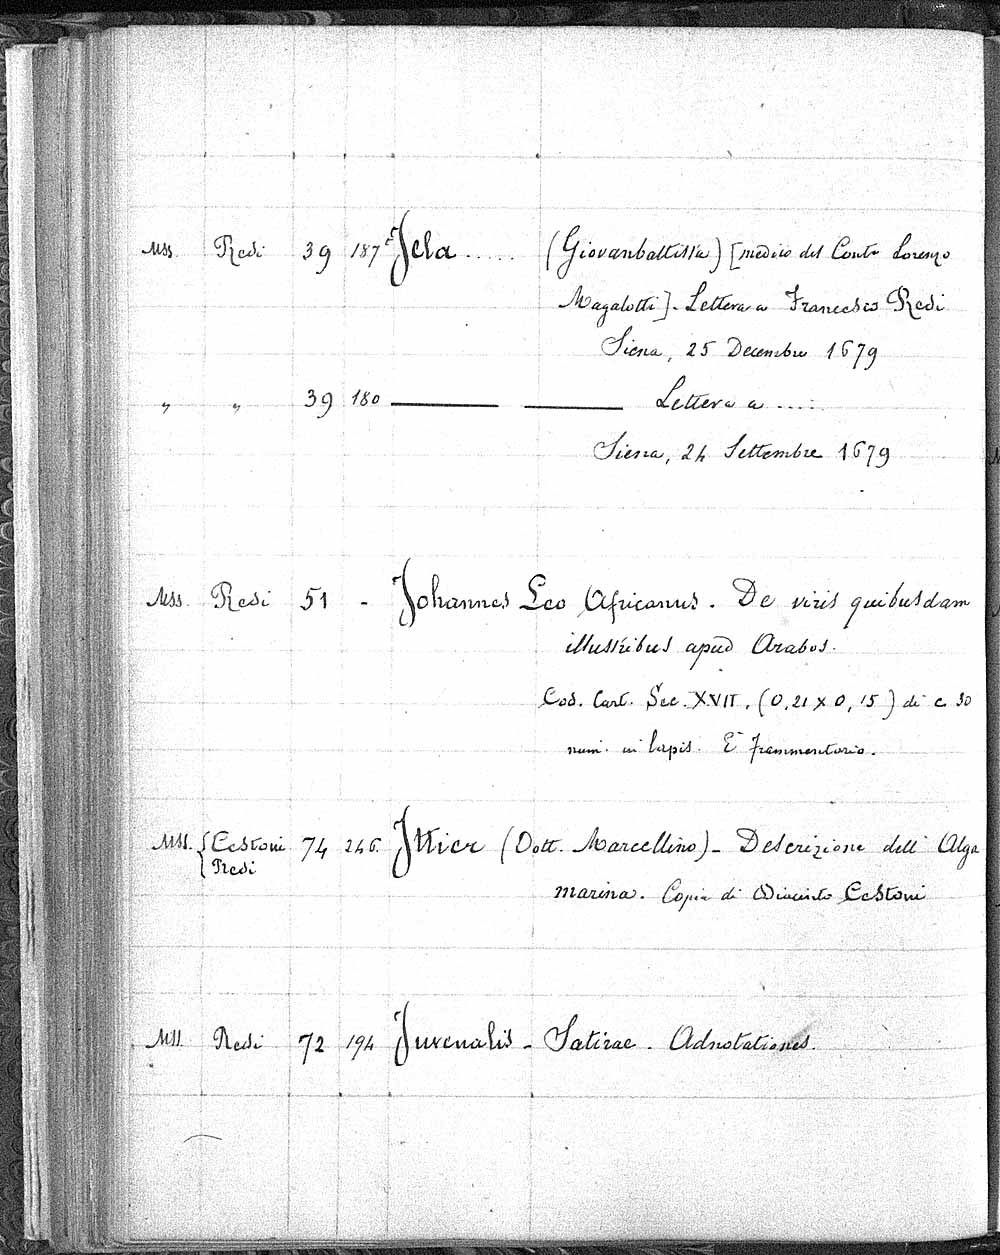 Mss Redi 39 187 Jela ..... (Giovanbattista) [medico del Conte Lorenzo
Magalotti] - Lettera a Francesco Redi
Siena, 25 Decembre 1679
" " 39 180 —— —— Lettera a .....
Siena, 24 Settembre 1679
Mss. Redi 51 - Johannes Leo Africanus - De viris quibusdam
illustribus apud Arabos.
Cod. Cart. Sec. XVII, (0,21 x 0,15) di c 30
num. in lapis. È frammentario.
Mss. { Cestoni 74 246 Jttier (Dott. Marcellino) - Descrizione dell' Alga
Redi
marina. Copia di Diacinto Cestoni
Mss. Redi 72 194 Juvenalis - Satirae - Adnotationes.